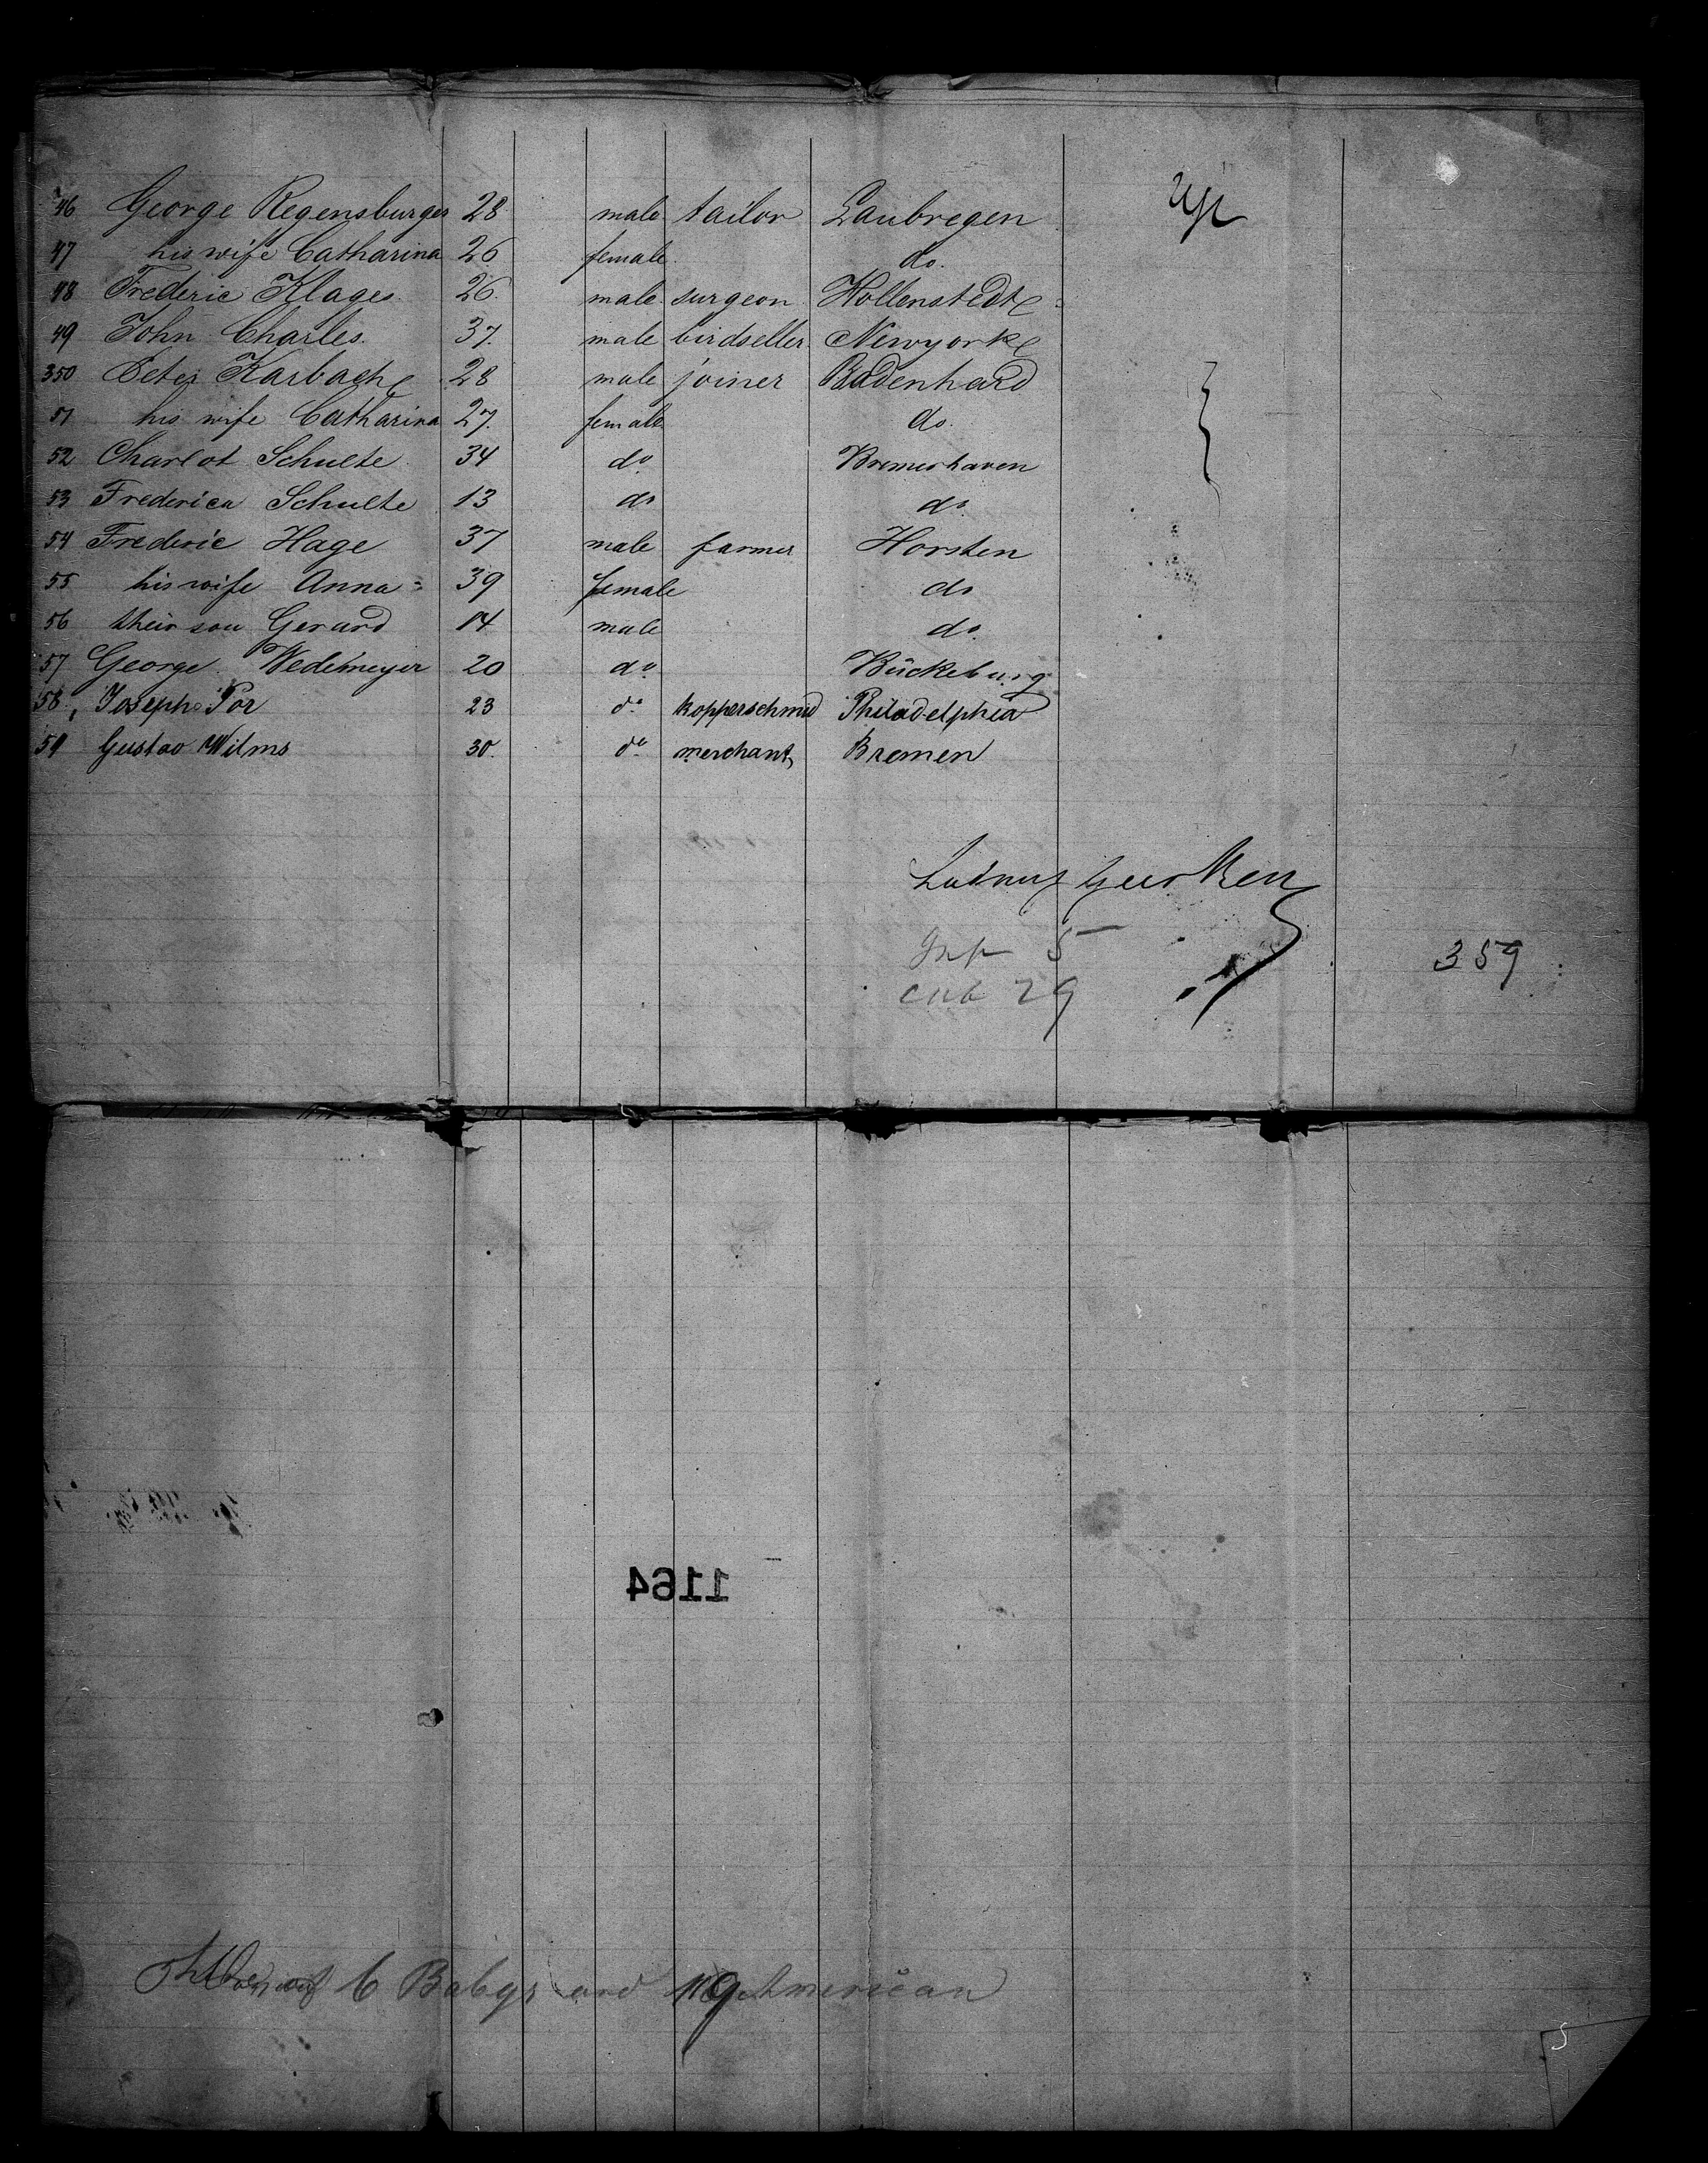 46 George Regensburger 28 male tailor Laubregen
47 his wife Catharina 26 female do.
48 Frederic Klages 26. male surgeon Hollenstedt
49 John Charles. 37. male birdseller Newyork
350 Peter Karbach 28 male joiner Badenhard
51 his wife Catharina 27. female do.
52 Charlot Schulte 34 do. Bremerhaven
53 Frederica Schulte 13 do do
54 Frederic Hage 37 male farmer Horsten
55 his wife Anna 39 female do
56 their son Gerard 14 male do.
57 George Wedemeyer 20 do. Bückeburg
58 Joseph Por 23 do. kopperschmid Philadelphia
59 Gustav Wilms 30. do. merchant Bremen
Geerken
Inf 5
359
29
6 Babys and 19 American
1164